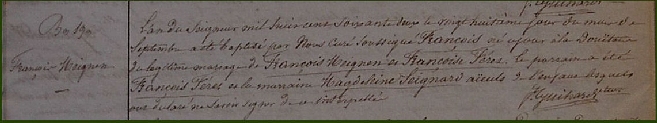 Bo 130
François Meignen
L'an du Seigneur mil huit cent soixante deux le vingt huitième jour du mois de
Septembre a été baptisé par Nous Curé Soussigné François né ce jour à la
du légitime mariage de François Meignen et Françoise Férés, le parrain a été
François Férés et la marraine Magdeleine Seignard aïeuls de l'enfant lesquels
ont déclaré ne savoir signer de ce interpellé